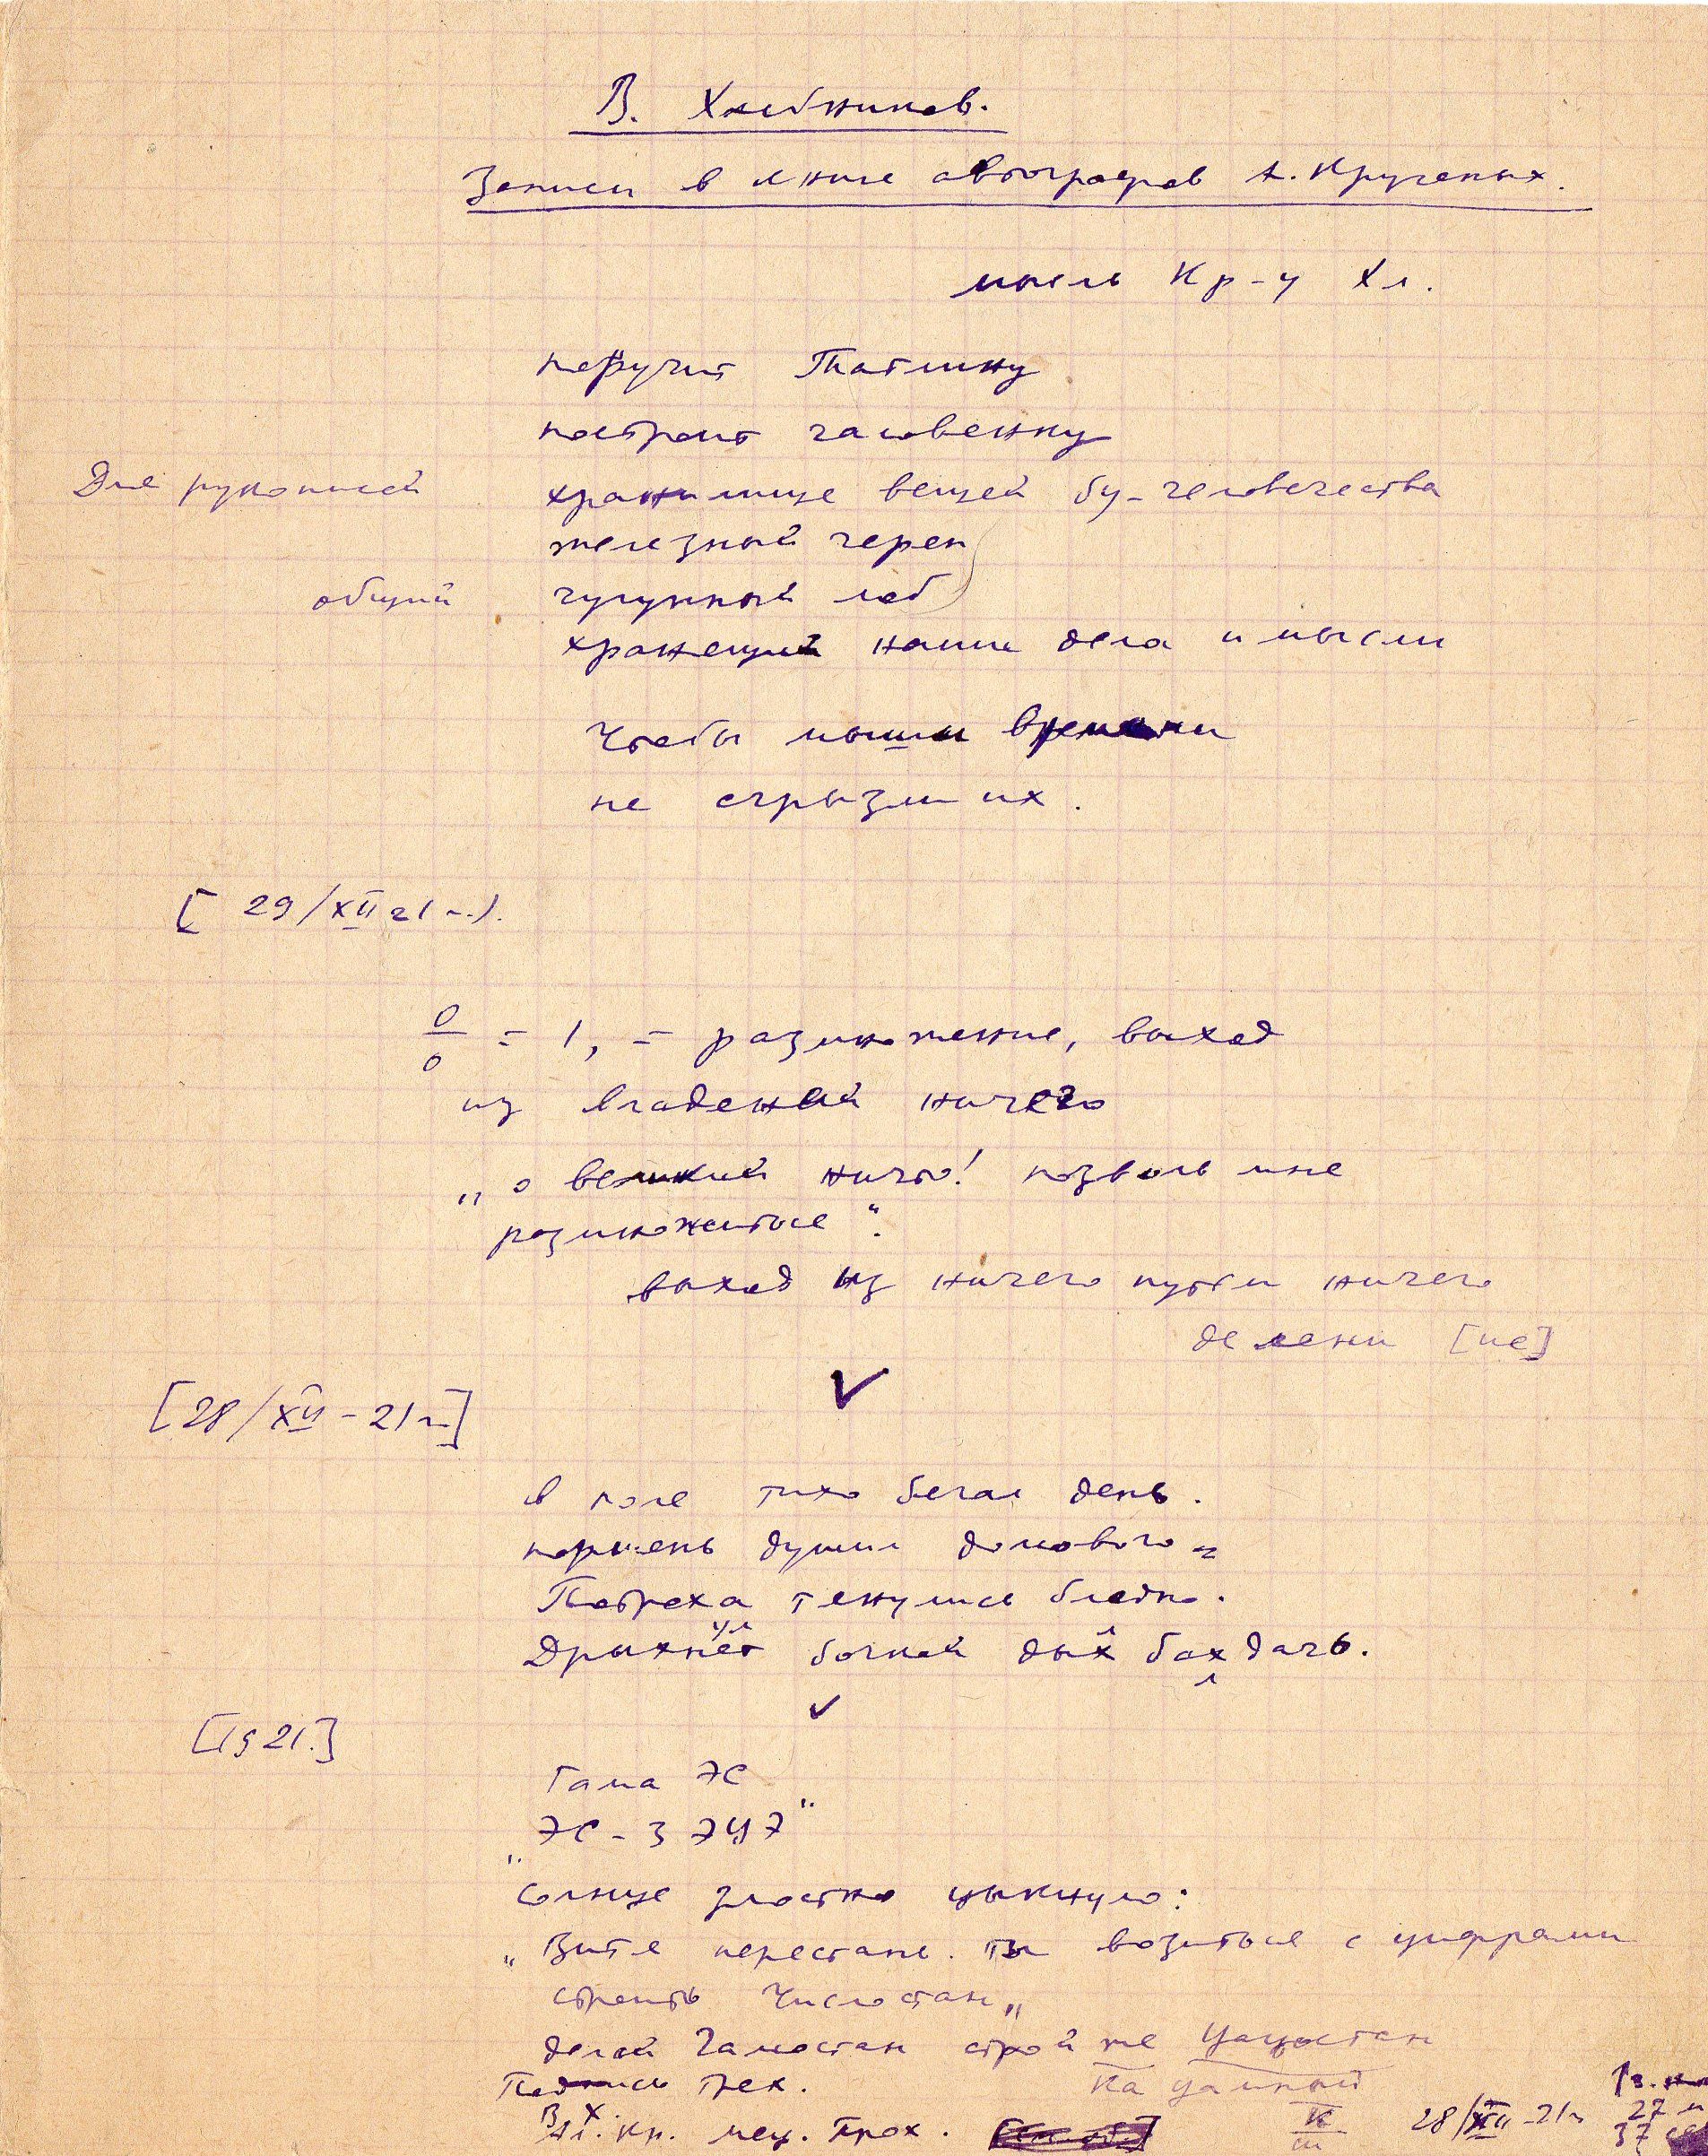 В. Хлебников.
Записи в книге автографов А. Крученых.
мысль Кр-у Хл.
поручит Татлину
построит часовенку
Для рукописей хранилище вещей бу-человечества
железный череп
общий чугунный лоб
хранящий наши дела и мысли
Чтобы мыши времени
не сгрызли их.
[29/XII 21 г.).
0/0 = 1, = размножение, выход
из владений ничего
„о великий ничто! позволь мне
размножиться“.
выход из ничего путем ничего
делени [ие]
[28/XII - 21 г.]
в поле тихо бегал день.
поршень душил домового =
Потроха тянулись бледно.
Дрыхнет бочкой дых бахдачь.
[1921.]
Гама ЭС
ЭС - З ЭЦЭ"
„Солнце злостно цыкнуло:
„Витя перестань ты возиться с цифрами
строить Числостан„
делай Гамостан строй же Цацостан
Подпись трех.
В. Х. Ал. Кр. мец. Прох.
28/XII - 21 г.